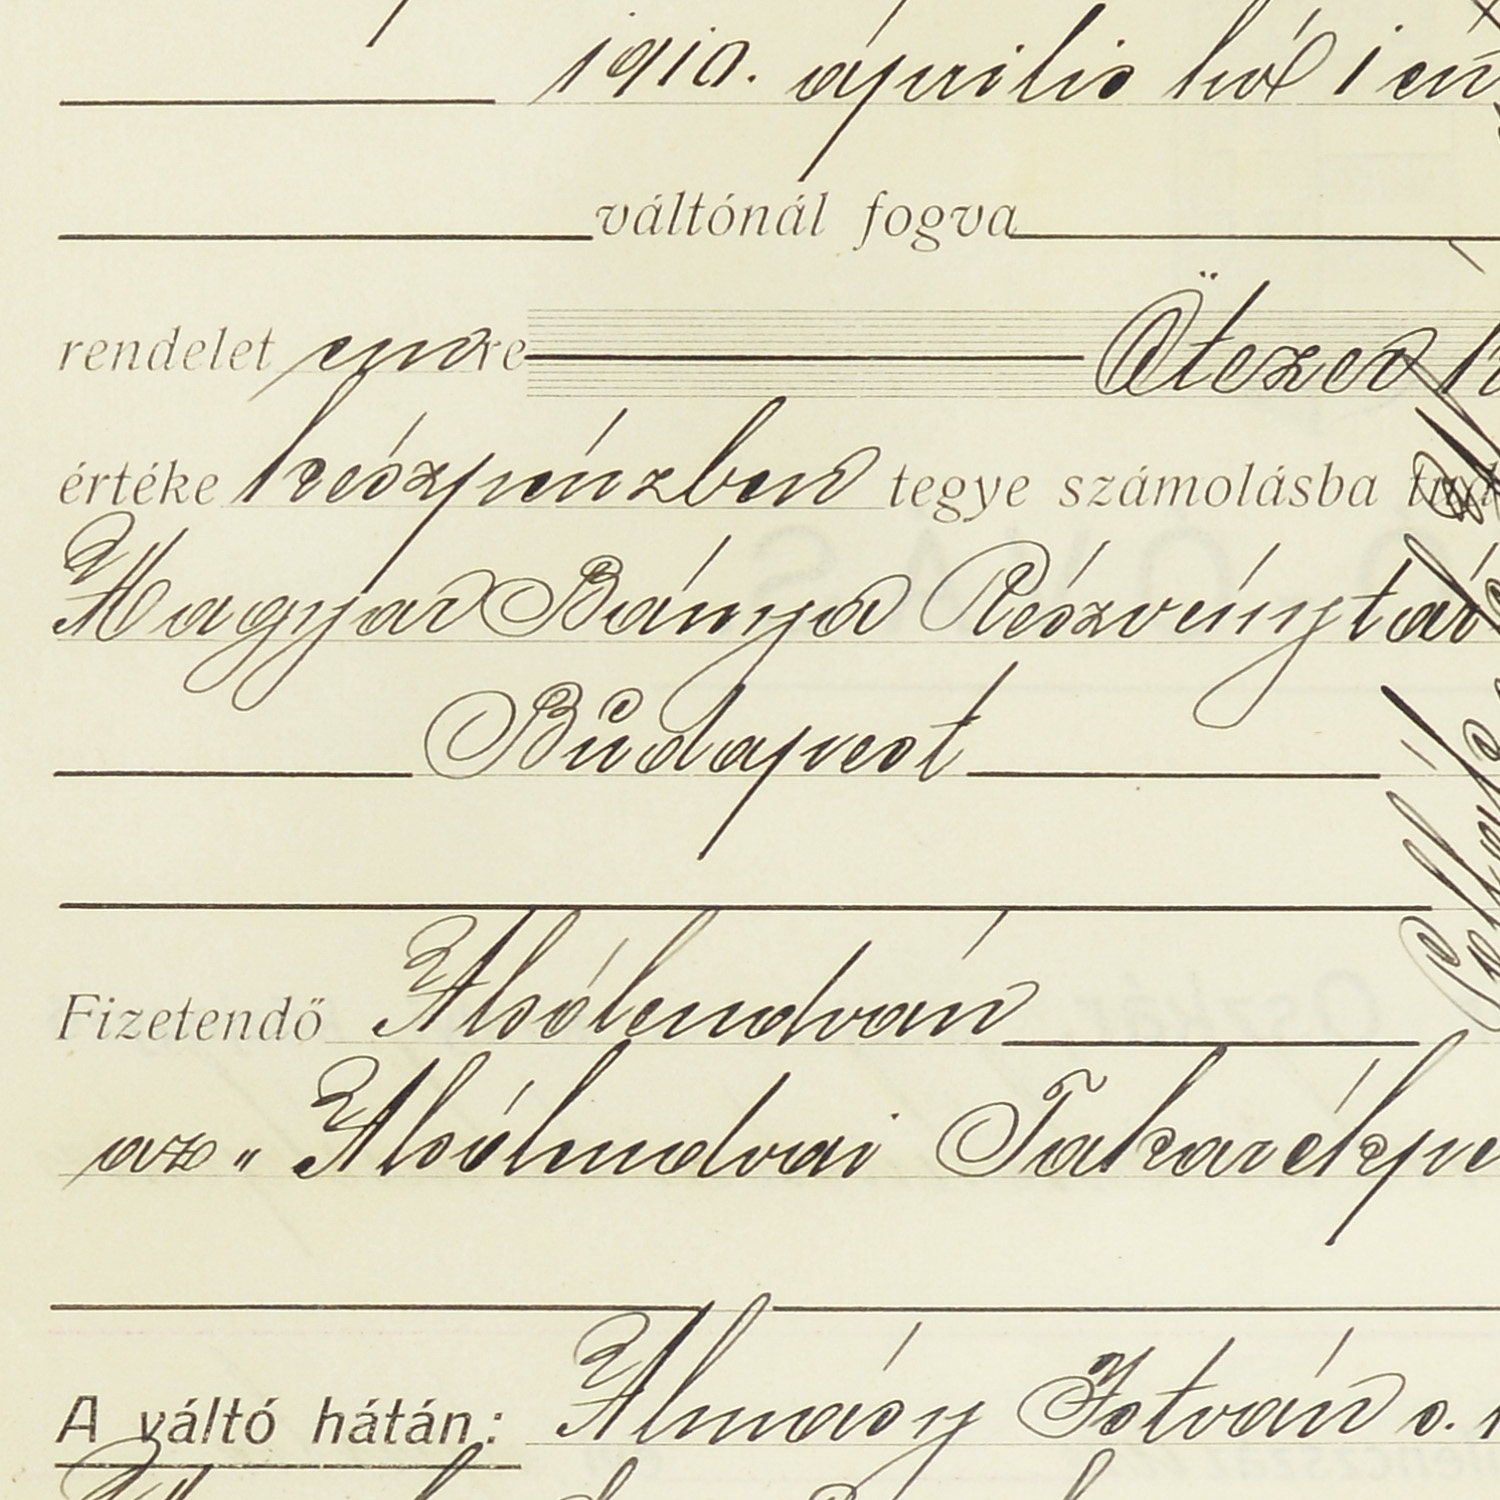 1910. április hó 1 én
váltónál fogva
rendelet enre
Ötezer
értéke készpénzben tegye számolásba
Magyar Bánya Részvénytár
Budapest
Fizetendő Alsólendván
az „Alsólendvai Takarékpé
A váltó hátán: Almásy István s.